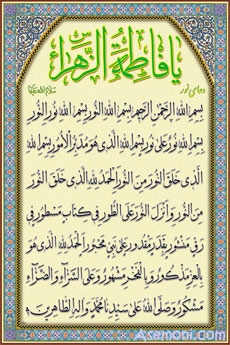 یا فاطمة الزهراء
دعای نور
سلام الله علیها
بِسْمِ اللهِ الرَّحْمنِ الرَّحیمِ بِسْمِ اللهِ النُّورِ بِسْمِ اللهِ نُورِ النُّورِ
بِسْمِ اللهِ نُورٌ عَلی نُورٍ بِسْمِ اللهِ الَّذی هُوَ مُدَبِّرُ الْاُمُورِ بِسْمِ اللهِ
الَّذی خَلَقَ النُّورَ مِنَ النُّورِ اَلْحَمْدُ لِلّهِ الَّذی خَلَقَ النُّورَ
مِنَ النُّورِ وَ اَنْزَلَ النُّورَ عَلَی الطُّورِ فی کِتابٍ مَسْطُورٍ فی
رَقٍّ مَنْشُورٍ بِقَدَرٍ مَقْدُورٍ عَلی نَبِیٍّ مَحْبُورٍ اَلْحَمْدُ لِلّهِ الَّذی هُوَ
بِالْعِزِّ مَذْکُورٌ وَ بِالْفَخْرِ مَشْهُورٌ وَ عَلَی السَّرّاءِ وَ الضَّرّاءِ
مَشْکُورٌ وَ صَلَّی اللهُ عَلی سَیِّدِنا مُحَمَّدٍ وَ الِهِ الطّاهِرینَ
Asemooni.com